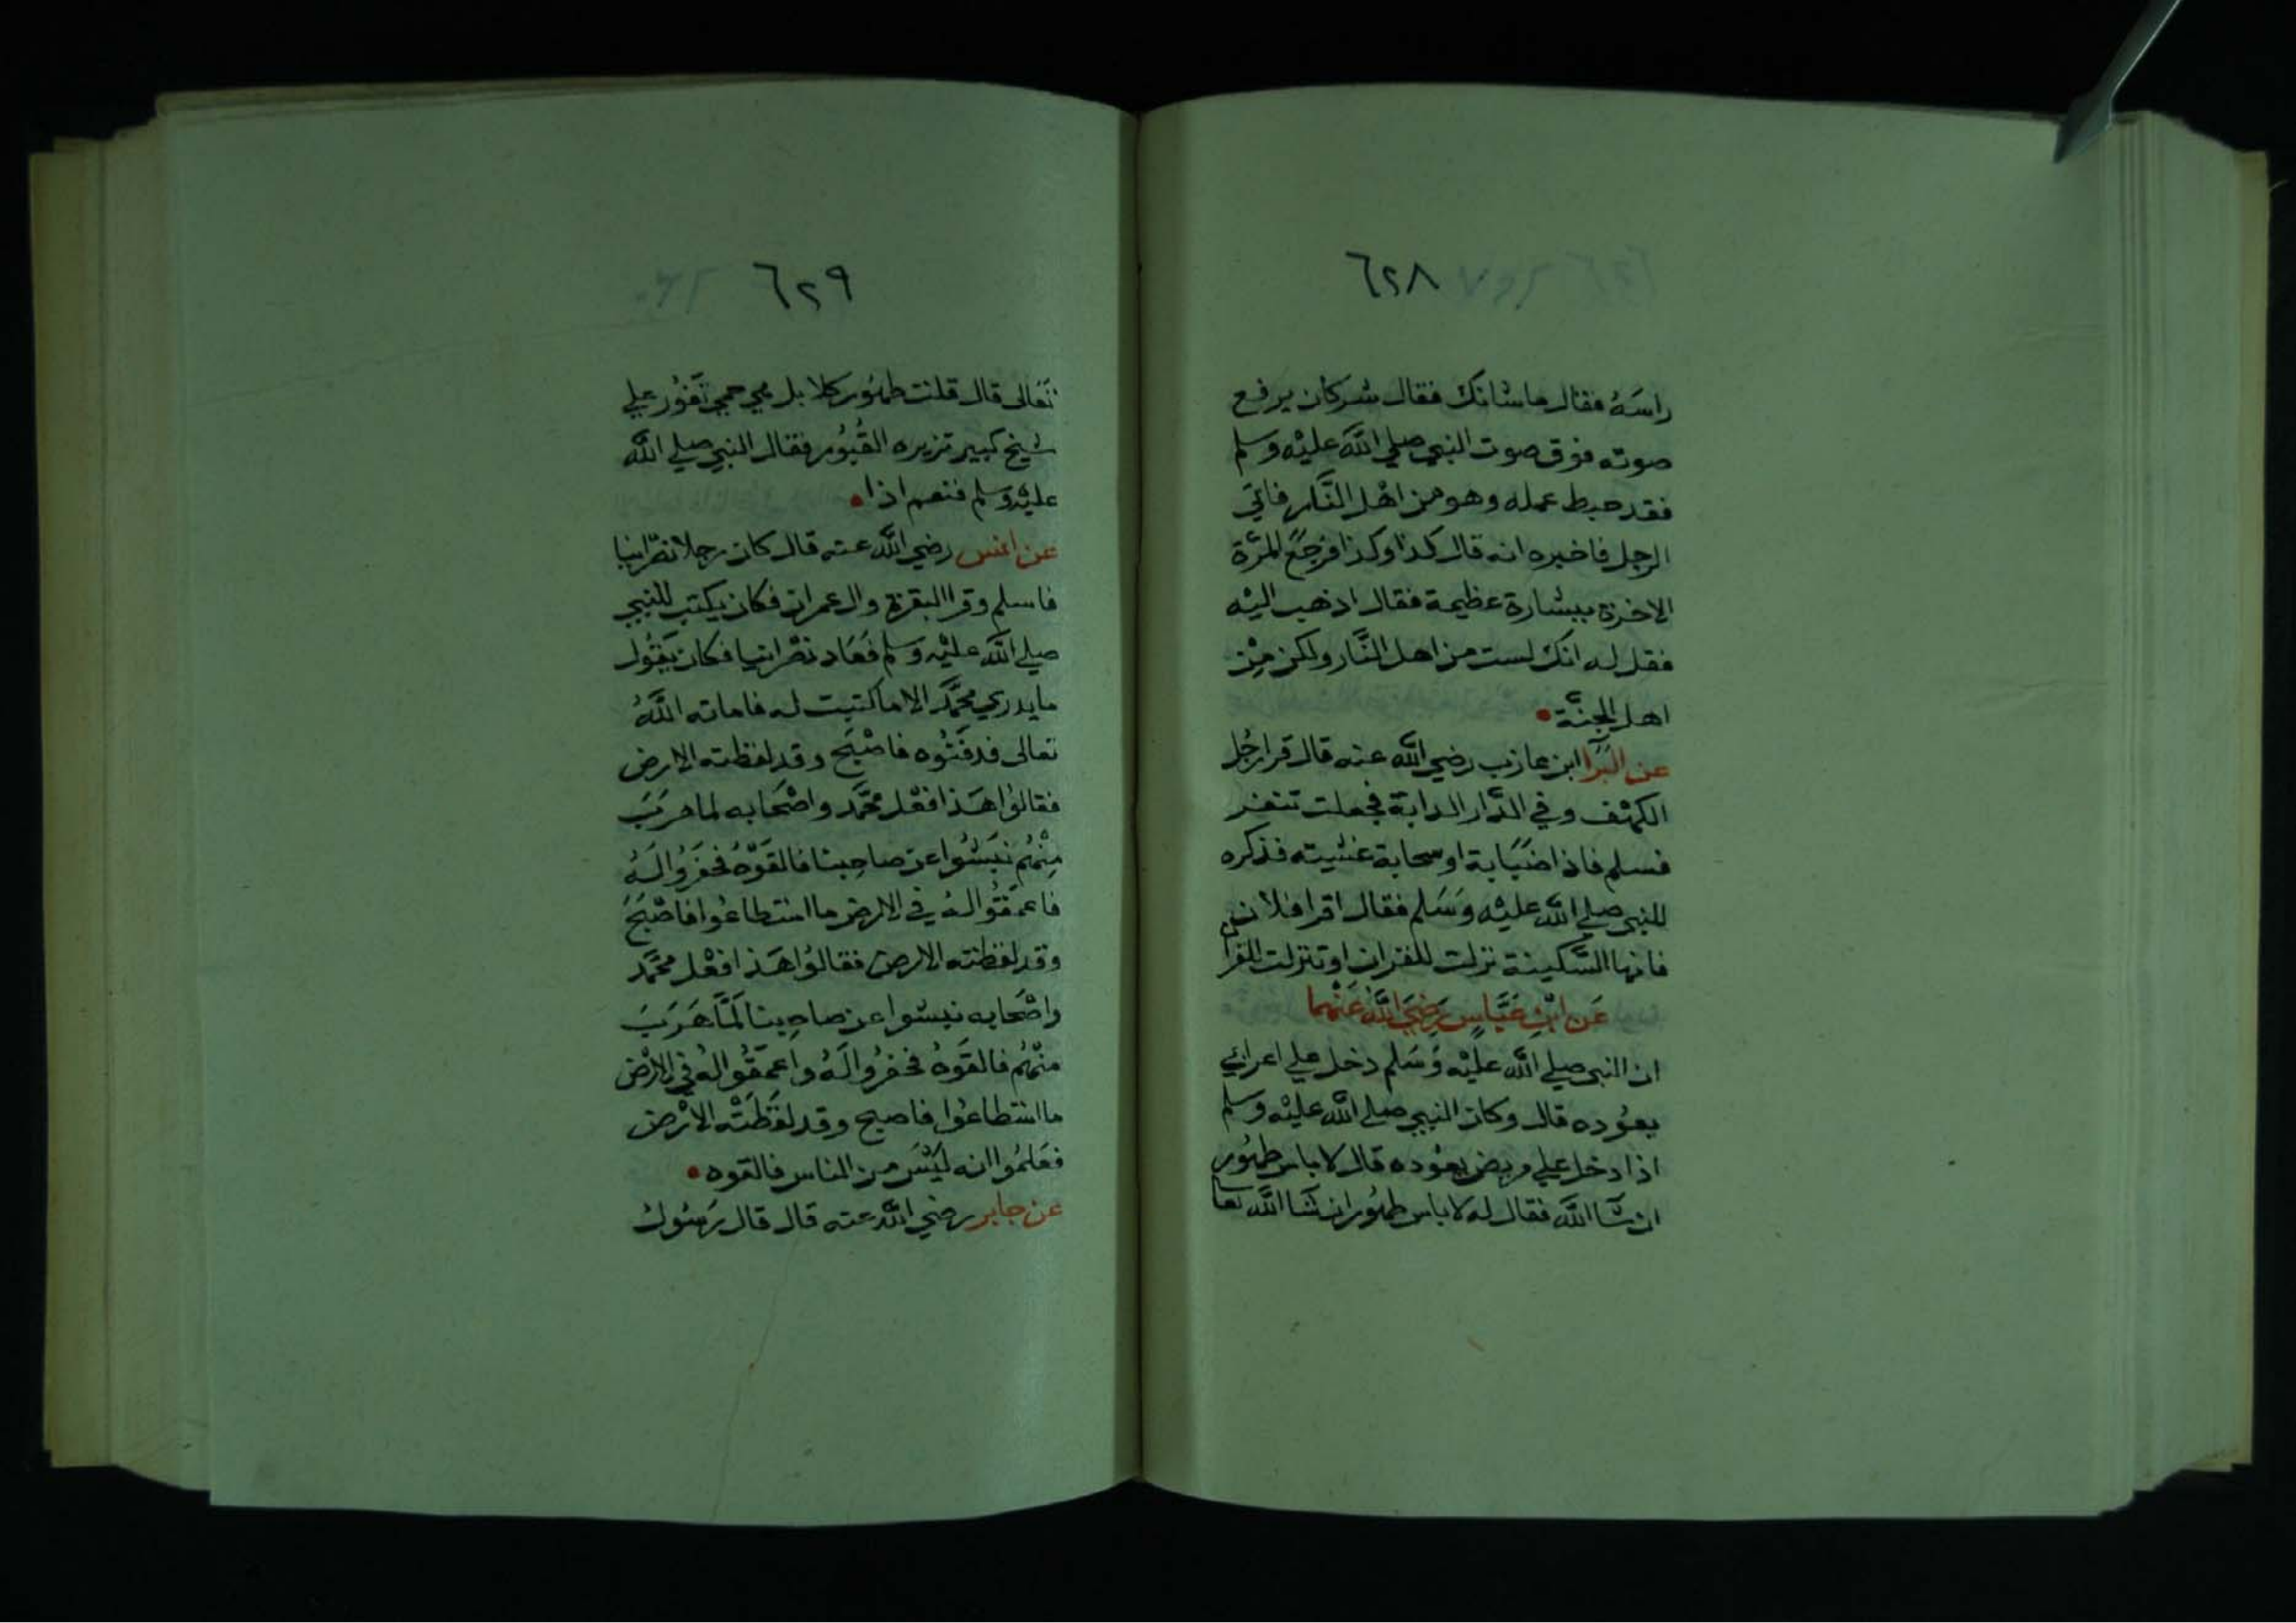 ٦٢٨
راسَهُ فقال ما شانك فقال شر كان يرفع
صوته فوق صوت النبي صلي اللَّه عليْه وسلم
فقد حبط عمله وهو من اهْل النَّار فاتي
الرجل فاخبره انه قال كذا وكذا فرجَعَ المرَّة
الاخرة ببشارة عظيمة فقال اذهب اليْه
فقل له انك لست من اهل النَّار ولكن مِنْ
اهل الجنَّة
عن البَرَا ابن عازب رضي اللَّه عنه قال قرا رجُل
الكهْف وفي الدَّار الدابة فجعلت تنفر
فسلم فاذا ضبَابة او سحابة غشيته فذكره
للنبي صلي اللَّه عليْه وَسَلم فقال اقرا فلان
فانها السَّكينة نزلت للقران او تنزلت للقرا
عَن ابْنِ عَبَّاسٍ رَضِيَ اللَّهُ عَنْهما
ان النبي صلي اللَّه عليْه وَسَلم دخل علي اعرابي
يعوُده قال وكان النبي صلي اللَّه عليْه وسلم
اذا دخل علي مريض يعوُده قال لا باس طهوُر
ان شَا اللَّه فقال له لا باس طهوُر ان شَا اللَّه تعا
٦٢٩
تَعَالى قال قلت طهوُر كلا بل هي حمي تَفوُر علي
شيخ كبير تزيره القُبوُر فقال النبي صلي اللَّه
عليْه وَسلم فنعم اذا
عن انس رضي اللَّه عنه قال كان رجلا نصْرانيا
فاسلم وقرا البقرة وال عمران فكان يكتب للنبي
صلي اللَّه عليْه وسلم فعَاد نصْرانيا فكان يَقوُل
ما يدري محمَّد الا ما كتبت له فاماته اللَّهُ
تعالى فدفنوُه فاصْبَح وقد لفظته الارض
فقالوُا هَذا فعْل محمَّد واصْحَابه لما هرَبَ
مِنْهُم نبَشوُا عن صاحِبنا فالقوْهُ فحفرُوا لَهُ
فاعمَقوُا لهُ في الارض ما استطاعُوا فاصْبَحَ
وقد لفظته الارض فقالوُا هَذا فعْل محمَّد
واصْحَابه نبشوا عن صاحِبنا لمَّا هَرَبَ
منْهُم فالقوْهُ فحفرُوا لَهُ واعمَقوُا لهُ في الارْض
ما استطاعوُا فاصبح وقد لفَظَتْه الارْض
فعَلموُا انه ليْسَ من الناس فالقوه
عن جابر رضي اللَّه عنه قال قال رَسُوك